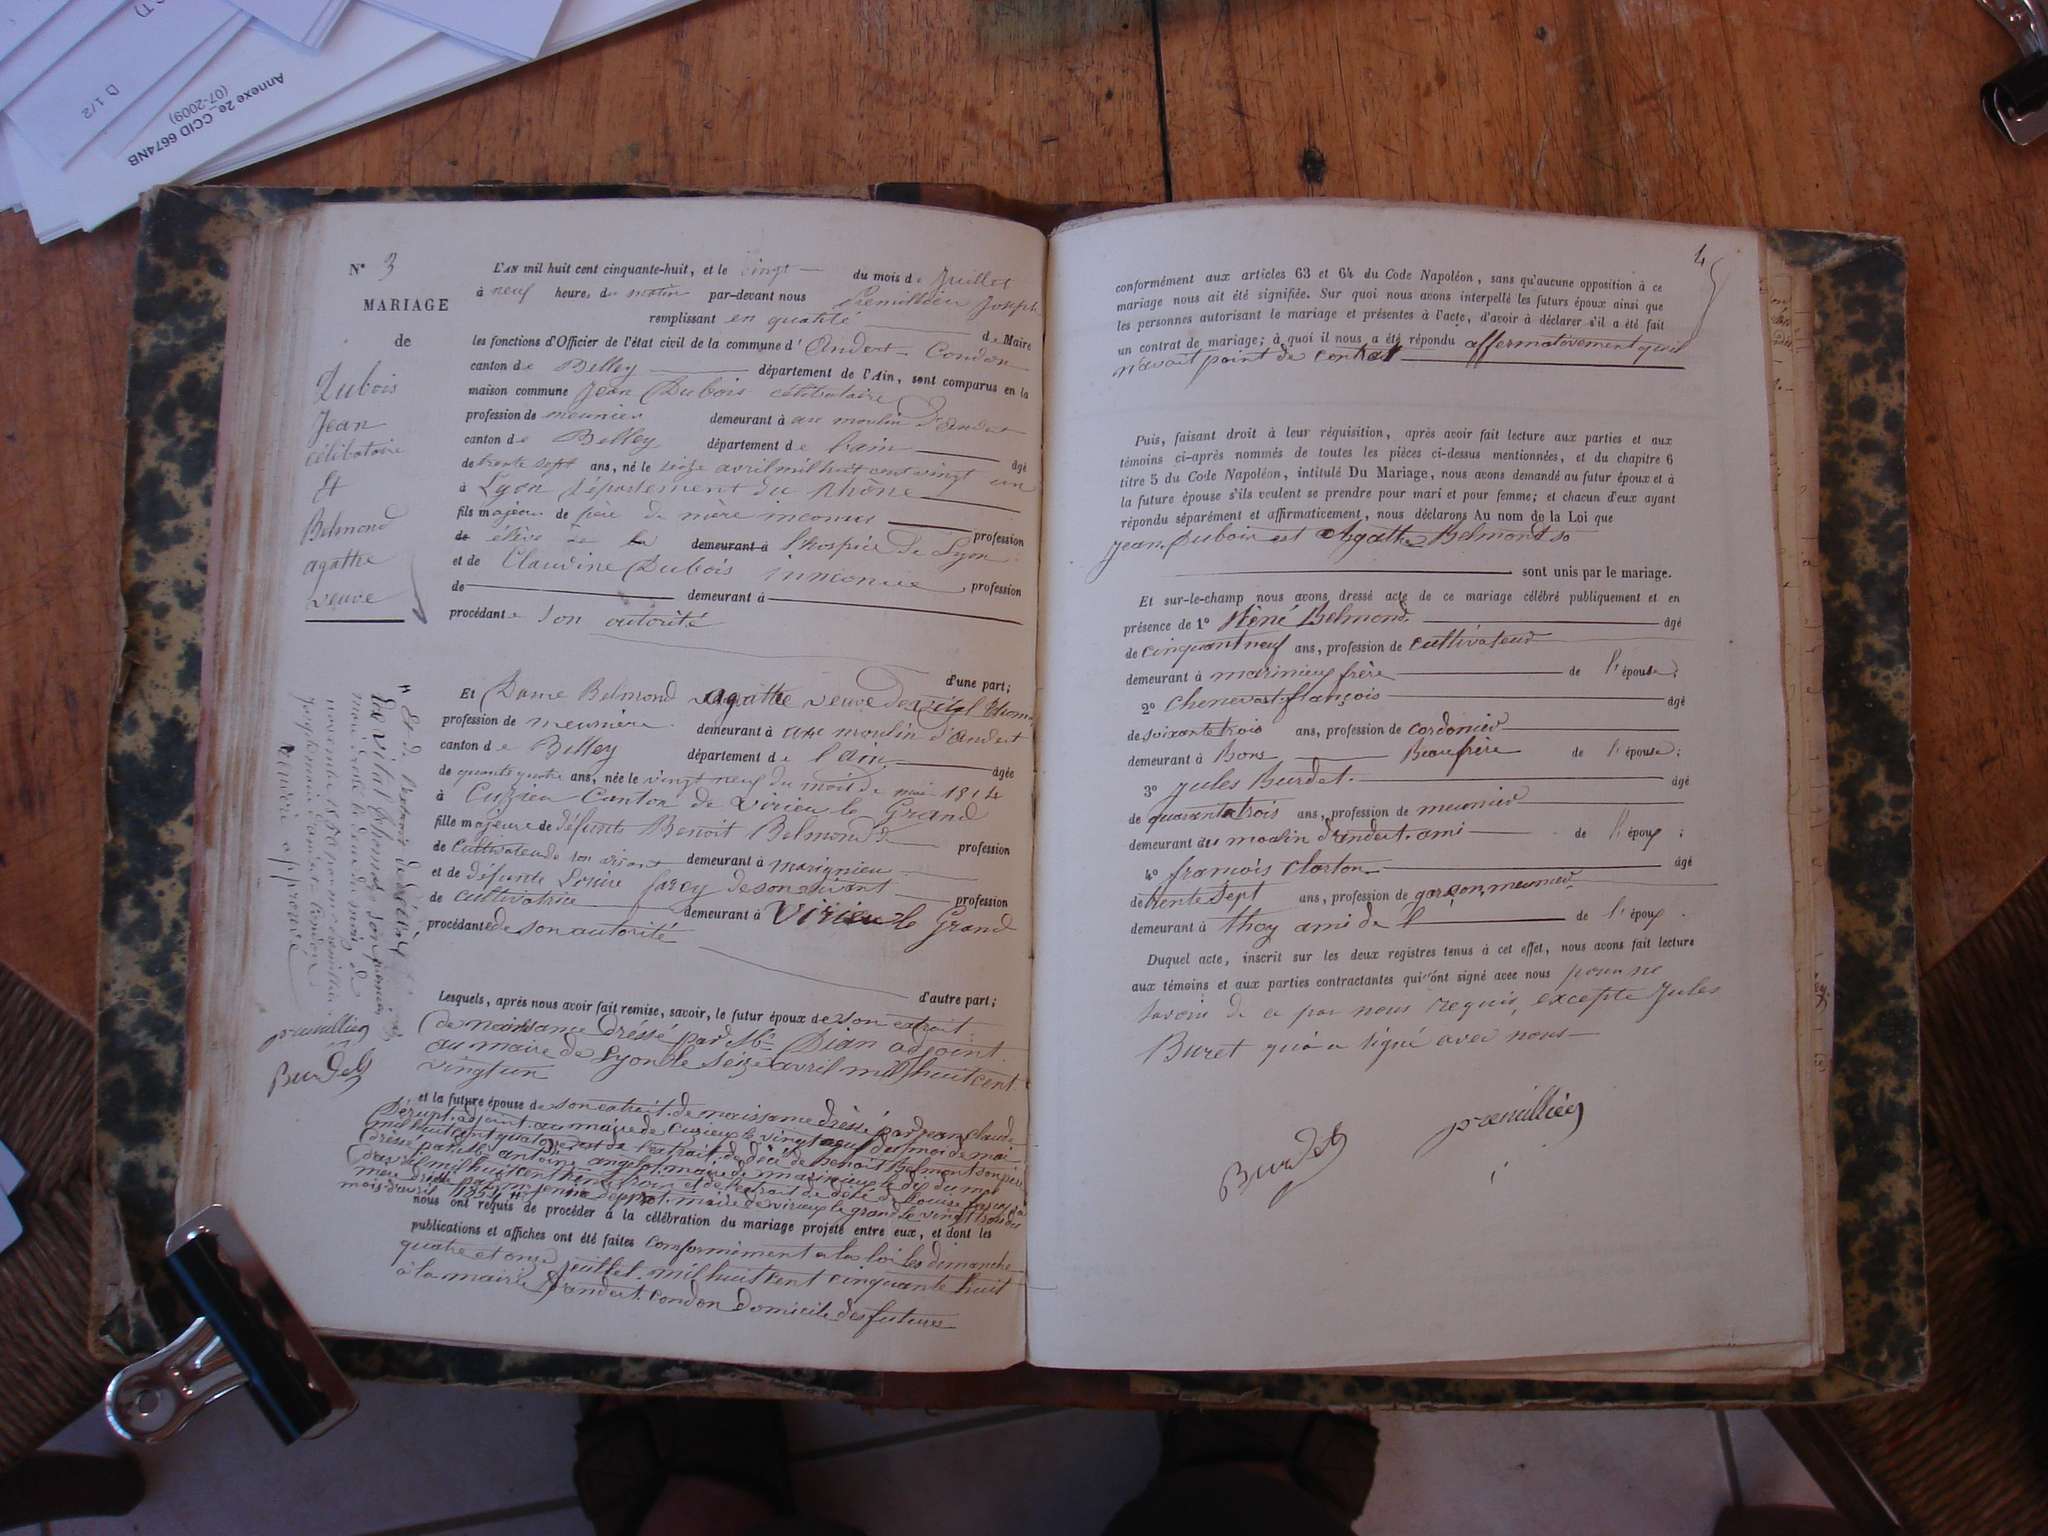 Annexe 2e_CCID 6674NB
(07-2009)
D 1/2
N° 3
MARIAGE
de
Dubois
Jean
célibataire
Et
Belmond
agathe
veuve
L'AN mil huit cent cinquante-huit, et le vingt du mois de Juillet
à neuf heure, du matin par-devant nous Premillieu Joseph
remplissant en qualité de Maire
les fonctions d'Officier de l'état civil de la commune d'Andert-Condon
canton de Belley département de l'Ain, sont comparus en la
maison commune Jean Dubois célibataire
profession de meunier demeurant à au moulin d'andert
canton de Belley département de l'ain âgé
de trente sept ans, né le seize avril mil huit cent vingt un
à Lyon Département du Rhône
fils majeur de père de mère inconus profession
de élève de la demeurant à l'hospice de Lyon
et de Claudine Dubois inconue profession
de demeurant à
procédant de son autorité
d'une part;
Et Dame Belmond agathe veuve de vital
profession de meunière demeurant à au moulin d'andert
canton de Belley département de l'ain âgée
de quante quatre ans, née le vingt neuf du mois de mai 1814
à Cuzieu Canton de Virieu le Grand
fille majeure de défunt Benoit Belmond profession
de cultivateur de son vivant demeurant à marignieu
et de défunte Louise farcy de son vivant profession
de cultivatrice demeurant à Virieu le Grand
procédant de son autorité
d'autre part;
Lesquels, après nous avoir fait remise, savoir, le futur époux de son extrait
de naissance dréssé par Mr Dian adjoint
au maire de Lyon le seize avril mil huit cent
vingt un
et la future épouse de son extrait de naissance dréssé par jean claude
adjoint au maire de Cuzieu le vingt neuf du moi de mai
mil huit cent quatorze et de l'extrait de décé de benoit Belmont son père
dréssé par Mr antoine maire de marinieu le dix du moi
d'avril mil huit cent trente trois et de l'extrait de décé de Louise farcy sa
mère maire de virieu le grand le vingt trois du
mois d'avril 1854
nous ont requis de procéder à la célébration du mariage projeté entre eux, et dont les
publications et affiches ont été faites conformément a la loi les dimanche
quatre et onze juillet mil huit cent cinquante huit
à la mairie d'andert condon domicile des futures
Et de l'extrait de décè
de vital son premier
mari le deux du mois de
novembre
maire d'andert condon
premillieu
Burdet
conformément aux articles 63 et 64 du Code Napoléon, sans qu'aucune opposition à ce
mariage nous ait été signifiée. Sur quoi nous avons interpellé les futurs époux ainsi que
les personnes autorisant le mariage et présentes à l'acte, d'avoir à déclarer s'il a été fait
un contrat de mariage; à quoi il nous a été répondu affermativement quil
n'avait point de contrat
Puis, faisant droit à leur réquisition, après avoir fait lecture aux parties et aux
témoins ci-après nommés de toutes les pièces ci-dessus mentionnées, et du chapitre 6
titre 5 du Code Napoléon, intitulé Du Mariage, nous avons demandé au futur époux et à
la future épouse s'ils veulent se prendre pour mari et pour femme; et chacun d'eux ayant
répondu séparément et affirmativement, nous déclarons Au nom de la Loi que
Jean Dubois et Agathe Belmond so
sont unis par le mariage.
Et sur-le-champ nous avons dressé acte de ce mariage célébré publiquement et en
présence de 1° Réné Belmond âgé
de cinquant neuf ans, profession de cultivateur
demeurant à marinieu frère de l'épouse;
2° chenevat françois âgé
de soixante trois ans, profession de cordonier
demeurant à Bons Beaufrère de l'épouse;
3° jules Burdet âgé
de quarante trois ans, profession de meunier
demeurant au moulin d'andert ami de l'époux;
4° francois clorton âgé
de trente sept ans, profession de garson meunier
demeurant à thoy ami de l' de l'époux.
Duquel acte, inscrit sur les deux registres tenus à cet effet, nous avons fait lecture
aux témoins et aux parties contractantes qui ont signé avec nous pour ne
savoir de ce par nous requis, excepte Jules
Buret qui a signé avec nous
Burdet premillieu